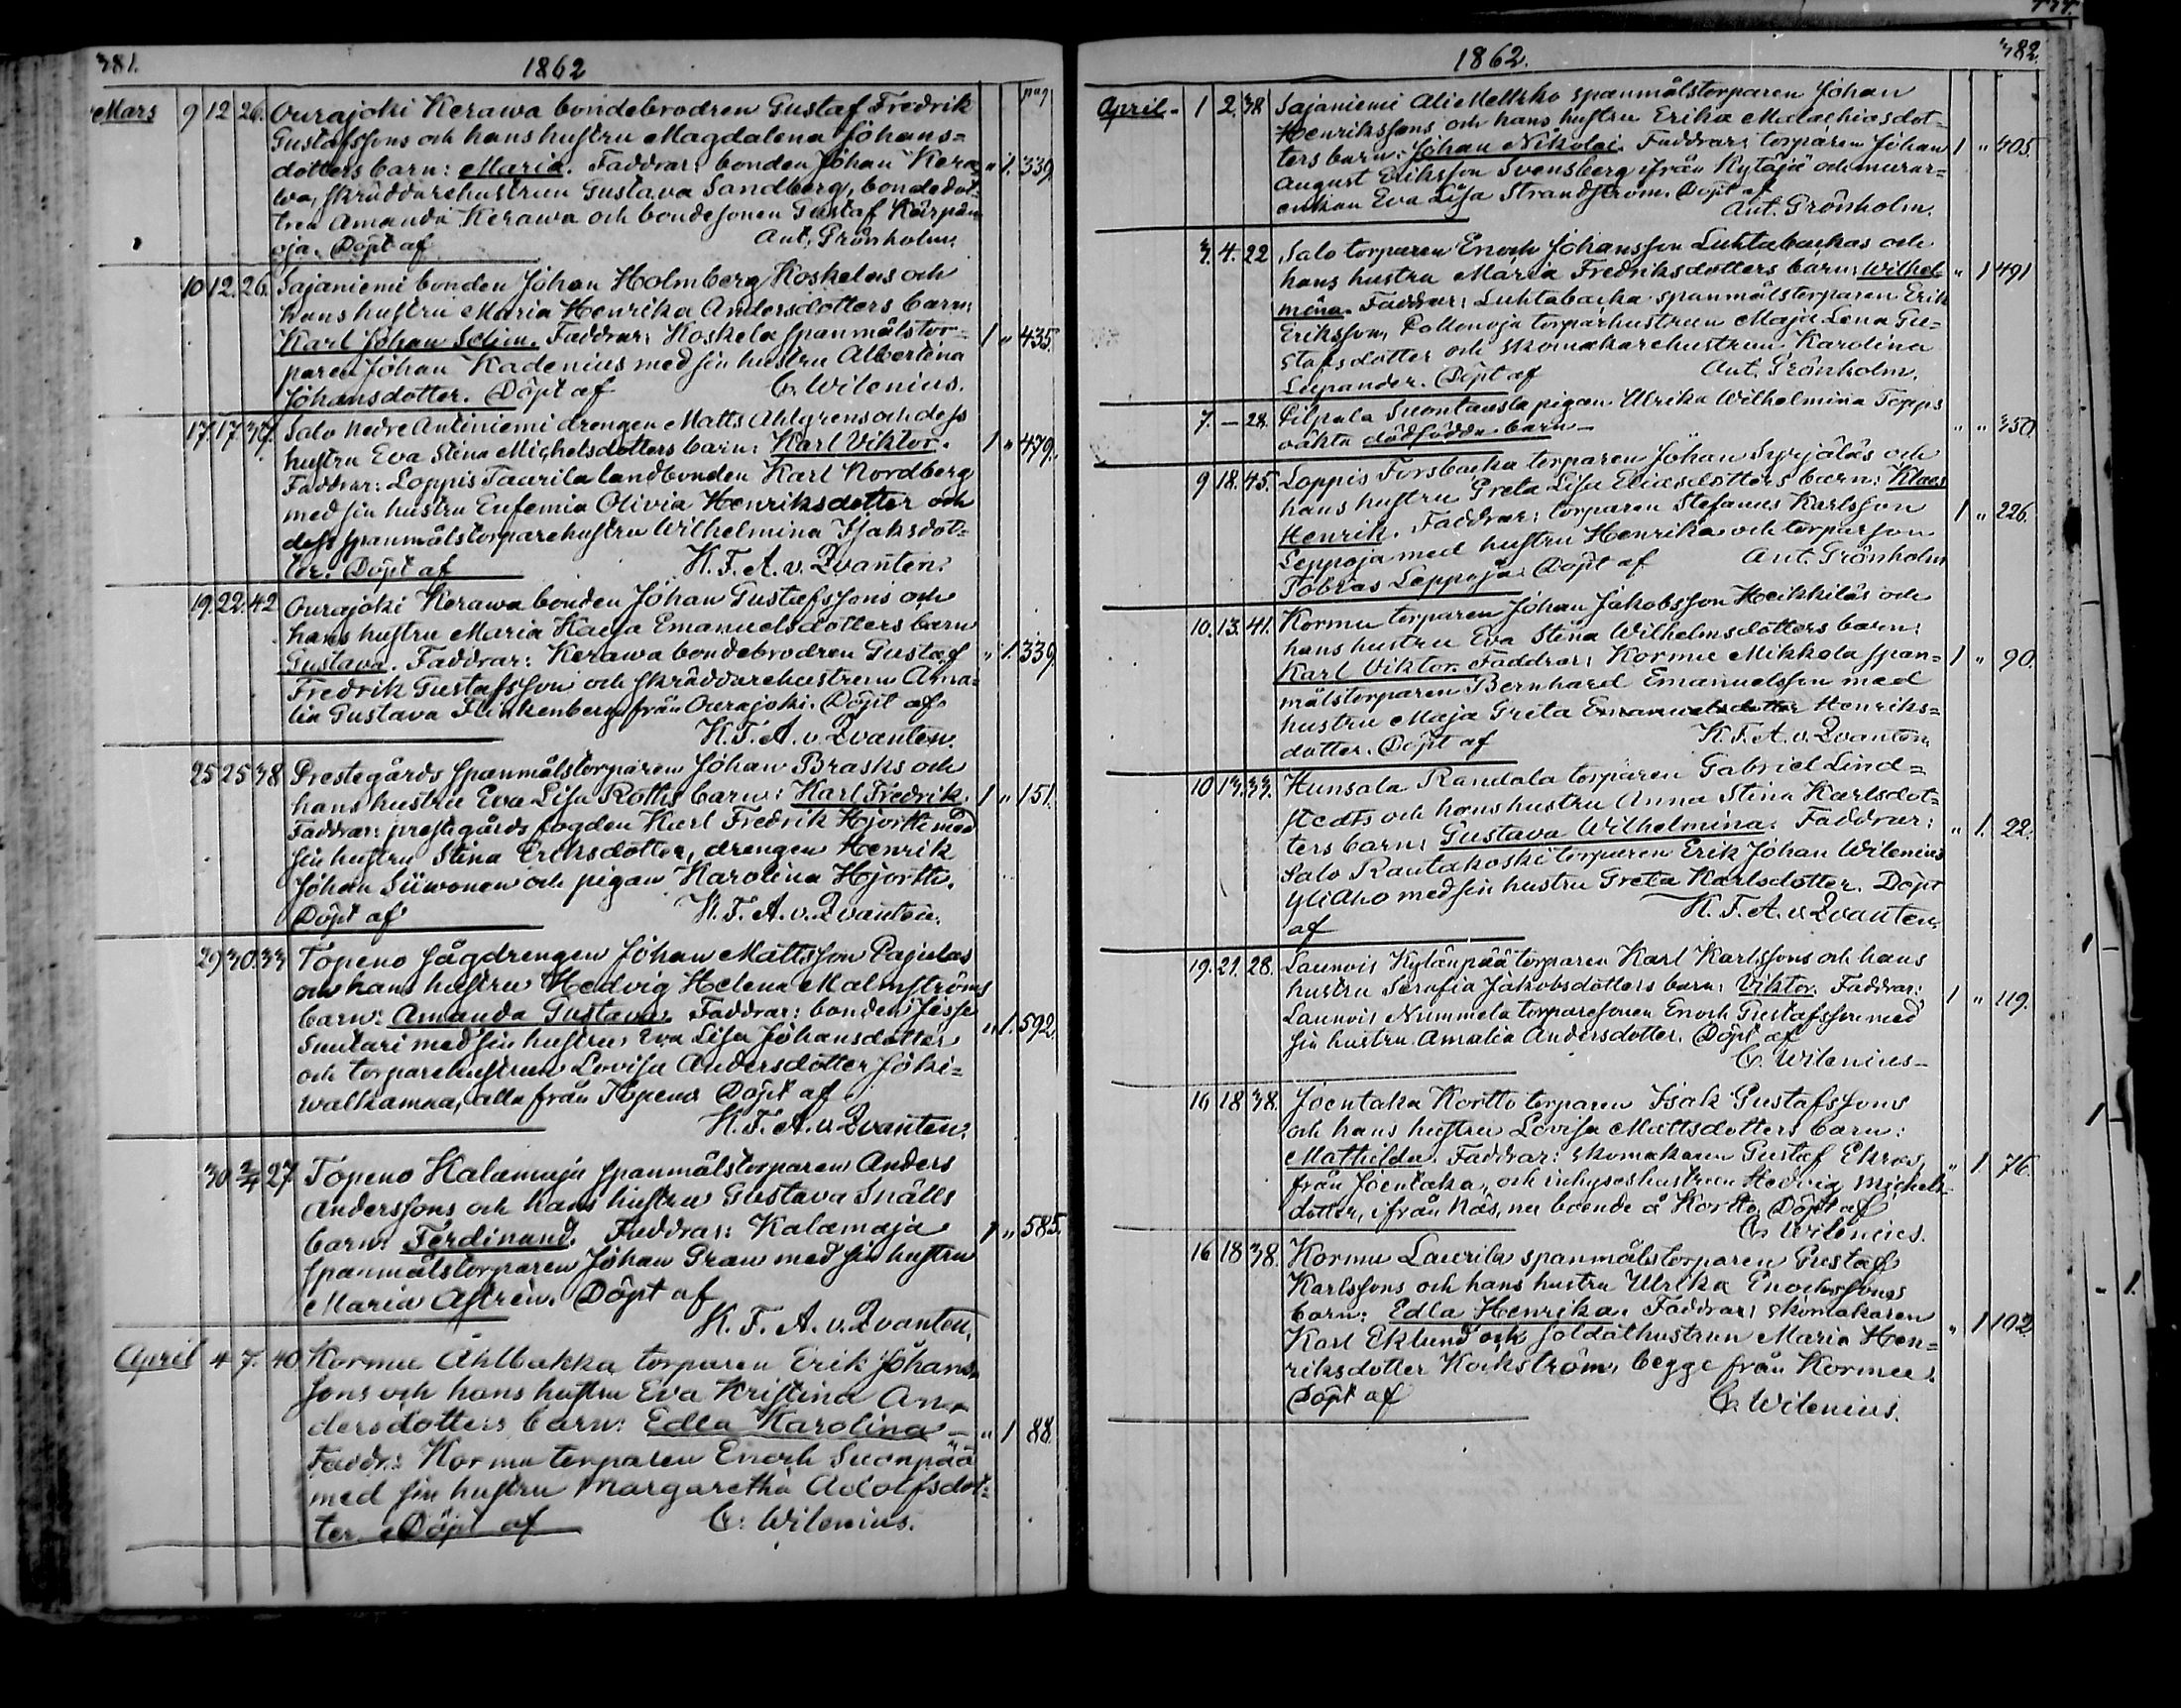 381.
1862
pag
Mars 9 12 26. Ourajoki Kerawa bondebrodren Gustaf Fredrik
Gustafssons och hans hustru Magdalena Johans=
dotters barn: Maria. Faddrar: bonden Johan Kera= „ 1. 339
wa, skräddarehustrun Gustava Sandberg, bondedot=
tren Amanda Kerawa och bondesonen Gustaf Kärpän
oja. Döpt af Ant. Grönholm.
10 12. 26. Sajaniemi bonden Johan Holmberg Koskelas och
hans hustru Maria Henrika Andersdotters barn:
Karl Johan Selim. Faddrar: Koskela spanmålstor= 1 „ 435.
paren Johan Kadenius med sin hustru Albertina
Johansdotter. Döpt af C. Wilenius.
17. 17. 37. Salo Nedre Antiniemi drengen Matts Ahlgrens och dess
hustru Eva Stina Michelsdotters barn: Karl Viktor. 1 „ 479.
Faddrar: Loppis Taurila landbonden Karl Nordberg
med sin hustru Eufemia Olivia Henriksdotter och
dess spanmålstorparehustru Wilhelmina Isaksdot=
ter. Döpt af K. F. A. v. Qvanten.
19. 22. 42 Ourajoki Kerawa bonden Johan Gustafssons och
hans hustru Maria Kajsa Emanuelsdotters barn
Gustava. Faddrar: Kerawa bondebrodren Gustaf „ 1. 339
Fredrik Gustafsson och skräddarehustrun Ama=
lia Gustava Flinkenberg från Ourajoki. Döpt af
K. F. A. v. Qvanten.
25 25 38 Prestegårds spanmålstorparen Johan Brasks och
hans hustru Eva Lisa Roths barn: Karl Fredrik. 1 „ 151.
Faddrar: prestegårds fogden Karl Fredrik Hjorth med
sin hustru Stina Eriksdotter, drengen Henrik
Johan Siiwonen och pigan Karolina Hjorth.
Döpt af K. F. A. v. Qvanten.
29 30. 33 Topeno sågdrengen Johan Mattsson Pajulas
och hans hustru Hedvig Helena Malmströms
barn: Amanda Gustava. Faddrar: bonden Jesse „ 1. 592.
Suutari med sin hustru Eva Lisa Johansdotter
och torparehustrun Lovisa Andersdotter Joki=
walkamaa, alla från Topeno Döpt af
K. F. A. v. Qvanten.
30 2/4 27 Topeno Kalamaja spanmålstorparen Anders
Anderssons och hans hustru Gustava Snälls
barn: Ferdinand. Faddrar: Kalamaja 1 „ 585.
spanmålstorparen Johan Gran med sin hustru
Maria Astrén. Döpt af
K. F. A. v. Qvanten.
April 4 7. 40 Kormu Ahlbakka torparen Erik Johans=
sons och hans hustru Eva Kristina An=
dersdotters barn: Edla Karolina – „ 1 88.
Faddr: Kormu torparen Enoch Suonpää
med sin hustru Margaretha Adolfsdot=
ter. Döpt af C. Wilenius.
1862.
382.
April – 1 2. 38. Sajaniemi Ali Mellkko spanmålstorparen Johan
Henrikssons och hans hustru Erika Malachiasdot=
ters barn: Johan Nikolai. Faddrar: torparen Johan 1 „ 405.
August Eriksson Svensberg ifrån Kytäjä och murar=
enkan Eva Lisa Strandström. Döpt af
Ant. Grönholm.
3. 4. 22 Salo torparen Enoch Johansson Luhtabackas och
hans hustru Maria Fredriksdotters barn: Wilhel „ 1 491
mina. Faddrar: Luhtabacka spanmålstorparen Erik
Eriksson, torparhustrun Maja Lena Gu=
stafsdotter och skomakarehustrun Karolina
Lepander. Döpt af Ant. Grönholm.
7. – 28. Pilpala Suontausta pigan Ulrika Wilhelmina Topps
oäkta dödfödda barn – „ „ 350.
9 18. 45. Loppis Forsbacka torparen Johan Syrjäläs och
hans hustru Greta Lisa Eliasdotters barn: Klaes
Henrik. Faddrar: torparen Stefanus Karlsson 1 „ 226.
Leppoja med hustru Henrika och torparson
Tobias Leppoja. Döpt af Ant. Grönholm
10. 13. 41. Kormu torparen Johan Jakobsson Heikkiläs och
hans hustru Eva Stina Wilhelmsdotters barn:
Karl Viktor. Faddrar: Kormu Mikkola span= 1 „ 90.
målstorparen Bernhard Emanuelsson med
hustru Maja Greta Emanuelsdotter Henriks=
dotter. Döpt af K. F. A. v. Qvanten.
10 13. 33. Hunsala Randala torparen Gabriel Lind=
stedts och hans hustru Anna Stina Karlsdot=
ters barn: Gustava Wilhelmina. Faddrar: „ 1. 22.
Salo Rautakoski torparen Erik Johan Wilenius
Yliaho med sin hustru Greta Karlsdotter. Döpt
af K. F. A. v. Qvanten.
19. 21. 28. Launois Kylänpää torparen Karl Karlssons och hans
hustru Serafia Jakobsdotters barn: Viktor. Faddrar: 1 „ 119.
Launois Nummela torparesonen Enoch Gustafsson med
sin hustru Amalia Andersdotter. Döpt af
C. Wilenius –
16 18 38. Joentaka Kortto torparen Isak Gustafssons
och hans hustru Lovisa Mattsdotters barn:
Mathilda. Faddrar: skomakaren Gustaf Ekroos „ 1 76.
från Joentaka, och inhyseshustrun Hedvig Michels=
dotter, ifrån Näs, nu boende å Kortto. Döpt af
C. Wilenius.
16 18 38. Kormu Laurila spanmålstorparen Gustaf
Karlssons och hans hustru Ulrika Enochssons
barn: Edla Henrika. Faddrar: skomakaren „ 1 102
Karl Eklund och soldathustrun Maria Hen=
riksdotter Kockström, begge från Kormu.
Döpt af C. Wilenius.